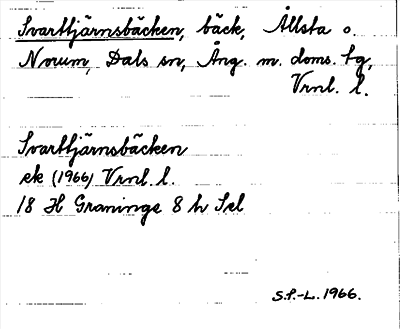 Svarttjärnsbäcken, bäck, Ållsta o.
Norum, Dals sn, Ång. m. doms. tg,
Vrnl. l.
Svarttjärnsbäcken
ek (1966) Vrnl. l.
18 H Graninge 8 h Scl
S.P.-L. 1966.